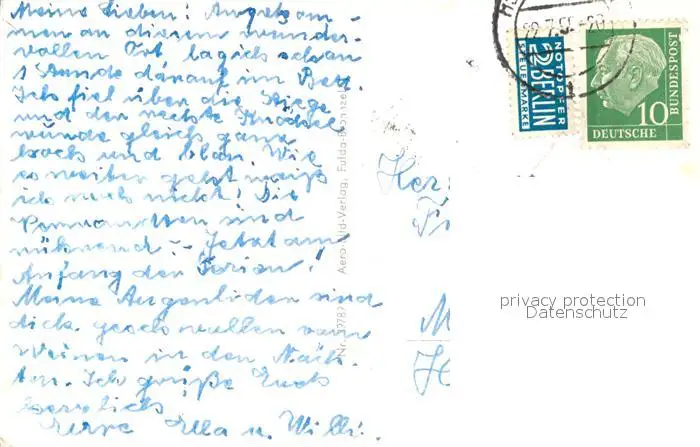 Meine Lieben! Angekom-
men an diesem wunder-
vollen Ort lag ich schon
1 Stunde darauf im Bett.
Ich fiel über die Stiege
und der rechte Knöchel
wurde gleich ganz
hoch und blau. Wie
es weiter geht weiß
ich noch nicht! Die
sind
rührend! – Jetzt am
Anfang der Ferien!
Meine Augenlider sind
dick geschwollen vom
Weinen in den Näch-
ten. Ich grüße Euch
herzlich,
Eure Ella u. Willi.
Aero-Bild-Verlag, Fulda
Her
F
M
H
NOTOPFER
2 BERLIN
STEUERMARKE
10
DEUTSCHE
BUNDESPOST
privacy protection
Datenschutz